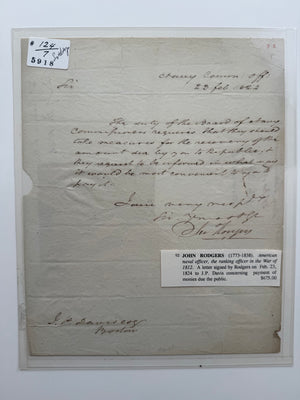 # 124
7
5918
Navy Comm. Off
23 Feb. 1824
Sir
The duty of the Board of Navy
Commissioners requires that they should
take measures for the recovery of the
amount due by you to the public, &
they request to be informed in what way
it would be most convenient to you to
pay it.
I am very resp'y
Sir
Jno Rodgers
JOHN RODGERS (1773-1838). American
naval officer, the ranking officer in the War of
1812. A letter signed by Rodgers on Feb. 23,
1824 to J.P. Davis concerning payment of
monies due the public. $675.00
J. P. Davis Esq
Boston